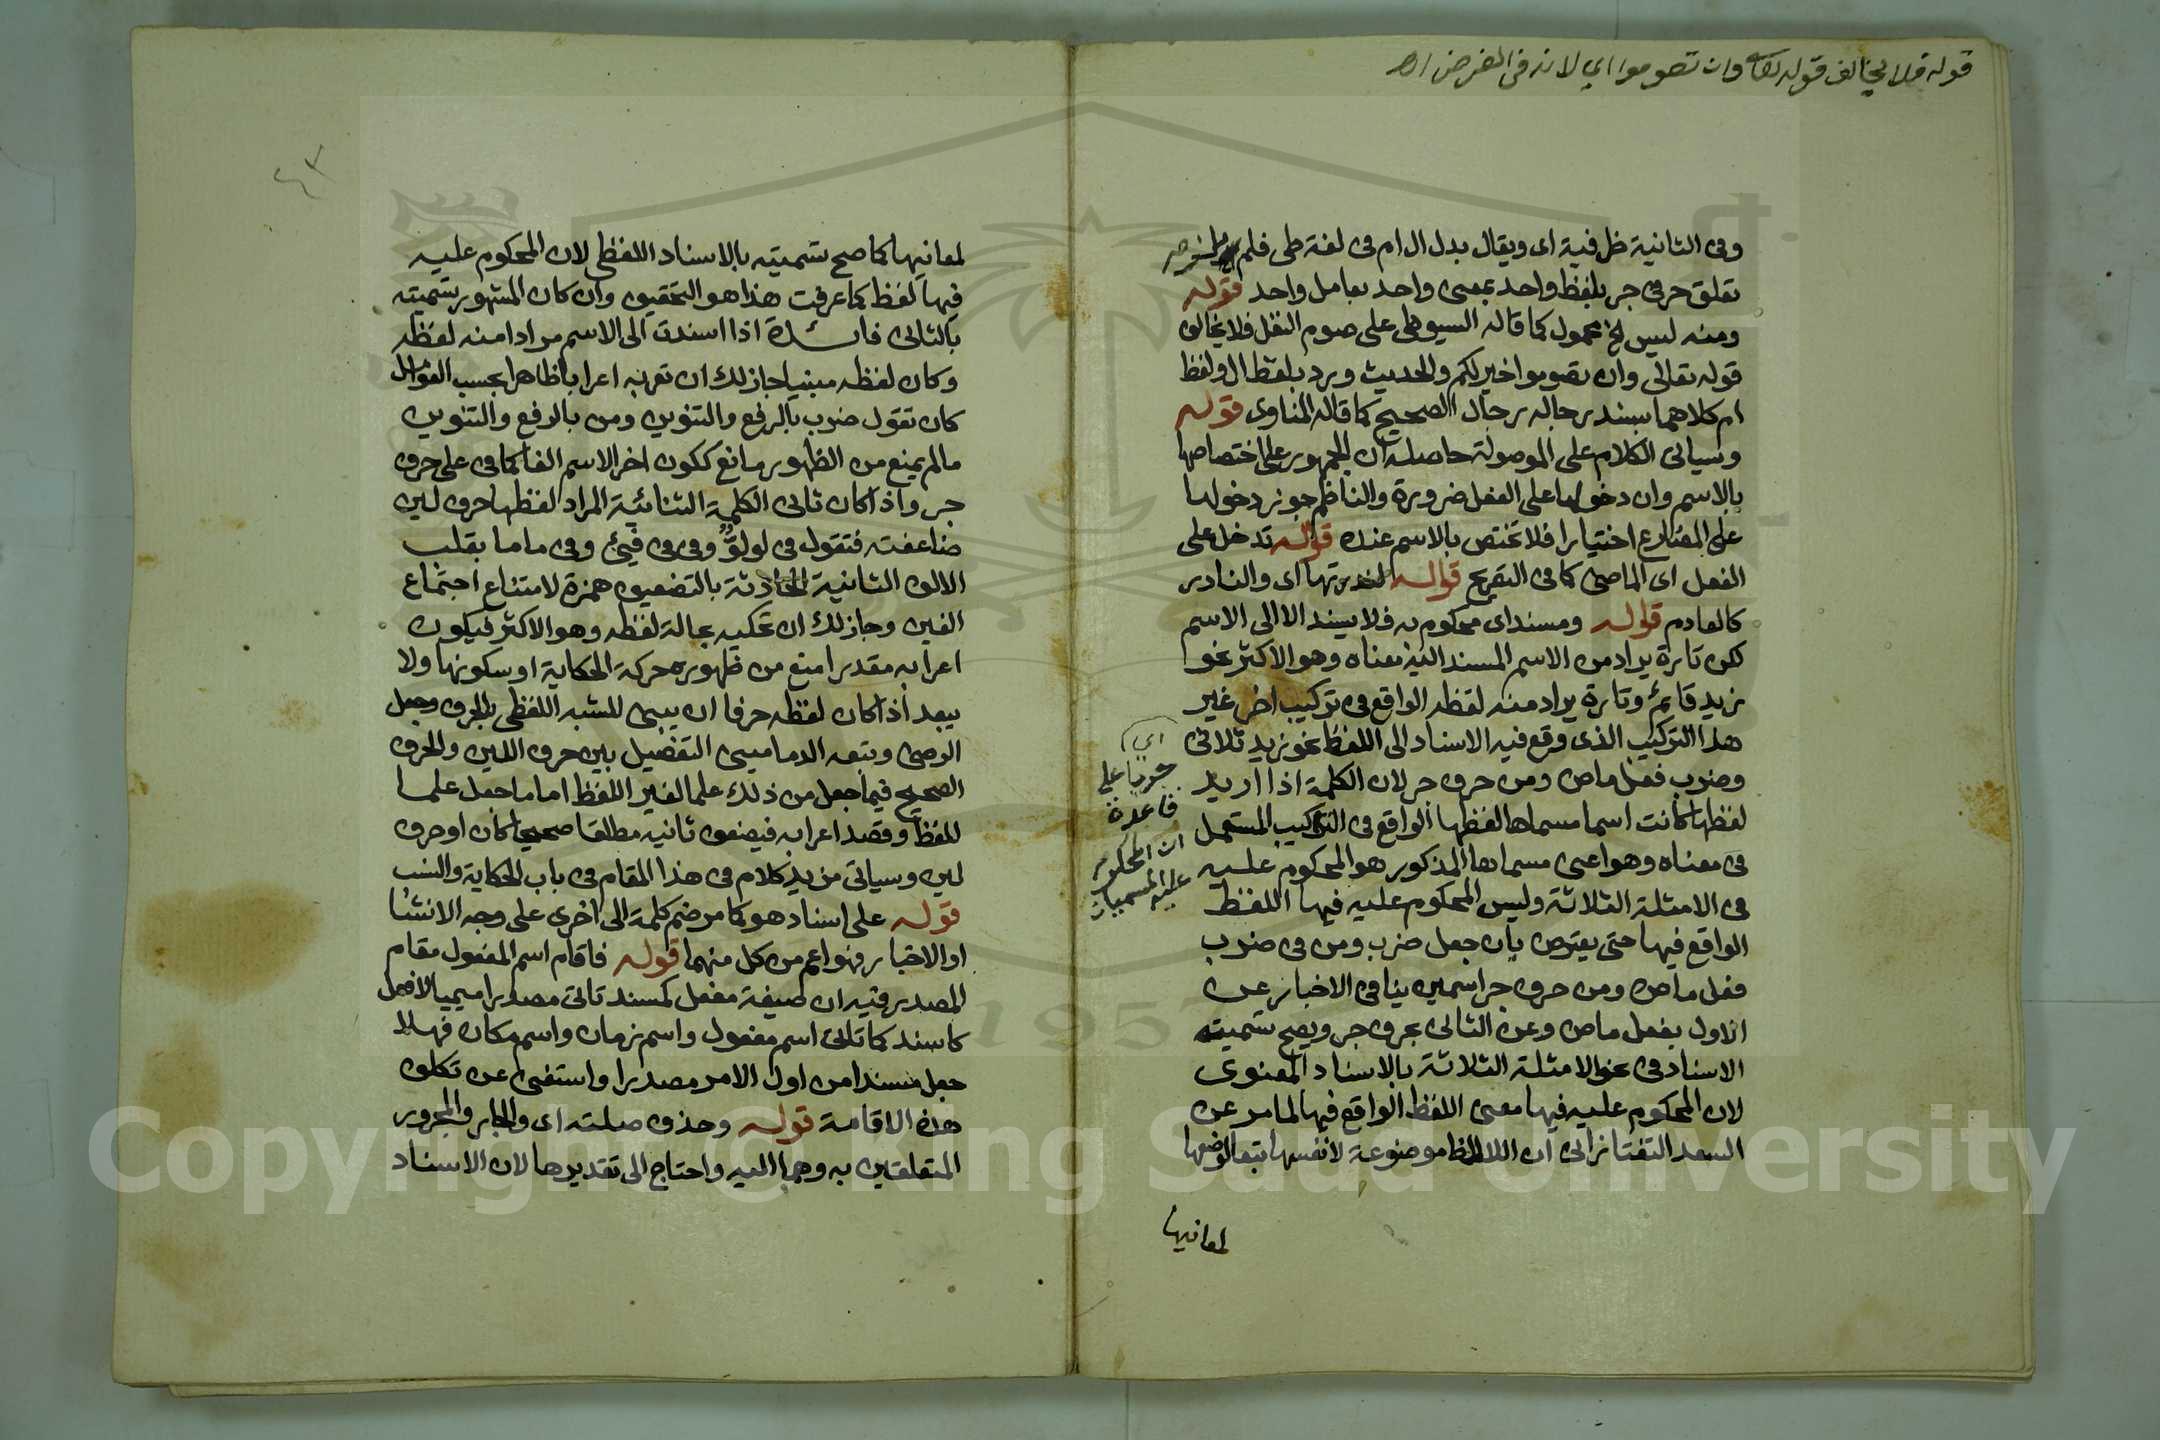 قوله فلا يخالف قوله تعالى وان تصوموا اي لانه في الفرض اه
وفى الثانية ظرفية اى ويقال بدل ال ام فى لغة طى فلم يلزم
تعلق حرفى جر بلفظ واحد بمعنى واحد بعامل واحد قوله
ومنه ليس الخ محمول كما قاله السيوطى على صوم النفل فلا يخالف
قوله تعالى وان تصوموا خير لكم والحديث ورد بلفظ ال ولفظ
ام كلاهما بسند رجاله رجال الصحيح كما قاله المناوى قوله
وسياتى الكلام على الموصولة حاصله ان الجمهور على اختصاصها
بالاسم وان دخولها على الفعل ضرورة والناظم جوز دخولها
على المضارع اختيارا فلا تختص بالاسم عنده قوله تدخل على
الفعل اى الماضى كما فى التفريع قوله لندرتها اى والنادر
كالعادم قوله ومسند اى محكوم به فلا يسند الا الى الاسم
لكن تارة يراد من الاسم المسند اليه معناه وهو الاكثر نحو
زيد قائم وتارة يراد منه لفظه الواقع فى تركيب اخر غير
هذا التركيب الذى وقع فيه الاسناد الى اللفظ نحو زيد ثلاثى
وضرب فعل ماض ومن حرف جر لان الكلمة اذا اريد
لفظها كانت اسما مسماها لفظها الواقع فى التركيب المستعمل
فى معناه وهو اعنى مسماها المذكور هو المحكوم عليه
فى الامثلة الثلاثة وليس المحكوم عليه فيها اللفظ
الواقع فيها حتى يعترض بان جعل ضرب ومن فى ضرب
فعل ماض ومن حرف جر اسمين ينافى الاخبار عن
الاول بفعل ماض وعن الثانى بحرف جر ويصح تسميته
الاسناد فى نحو الامثلة الثلاثة بالاسناد المعنوى
لان المحكوم عليه فيها معنى اللفظ الواقع فيها لما مر عن
السعد التفتازانى ان الالفاظ موضوعة لانفسها تبعا لوضعها
لمعانيها
اي
جريا على
قاعدة
ان المحكوم
عليه المسميات
٤٣
لمعانيها كما صح تسميته بالاسناد اللفظى لان المحكوم عليه
فيها لفظ كما عرفت هذا هو التحقيق وان كان المشهور تسميته
بالثانى فائدة اذا اسندت الى الاسم مرادا منه لفظه
وكان لفظه مبنيا جاز لك ان تعربه اعرابا ظاهرا بحسب العوامل
كان تقول ضرب بالرفع والتنوين ومن بالرفع والتنوين
مالم يمنع من الظهور مانع ككون اخر الاسم الفا كما فى على حرف
جر واذا كان ثانى الكلمة الثنائية المراد لفظها حرف لين
ضاعفته فتقول فى لو لوّ وفى فى فىّ وفى ما ما بقلب
الالف الثانية الحادثة بالتضعيف همزة لامتناع اجتماع
الفين وجاز لك ان تحكيه بحالة لفظه وهو الاكثر فيكون
اعرابه مقدرا منع من ظهوره حركة الحكاية او سكونها ولا
يبعد اذا كان لفظه حرفا ان يبنى للشبه اللفظى بالحرف وجعل
الرضى وتبعه الدمامينى التفصيل بين حرف اللين والحرف
الصحيح فيما جعل من ذلك علما لغير اللفظ اما ما جعل علما
للفظ وقصد اعرابه فيضعف ثانيه مطلقا صحيحا كان او حرف
لين وسياتى مزيد كلام فى هذا المقام فى باب الحكاية والنسب
قوله على اسناد هو كما مر ضم كلمة الى اخرى على وجه الانشا
او الاخبار فهو اعم من كل منهما قوله فاقام اسم المفعول مقام
المصدر فيه ان صيغة مفعل كمسند تاتى مصدرا ميميا لافعل
كاسند كما تاتى اسم مفعول واسم زمان واسم مكان فهلا
جعل مسندا من اول الامر مصدرا واستغنى عن تكلف
هذه الاقامة قوله وحذف صلته اى والجار والمجرور
المتعلقين به وهما اليه واحتاج الى تقديرها لان الاسناد
Copyright © King Saud University
1957